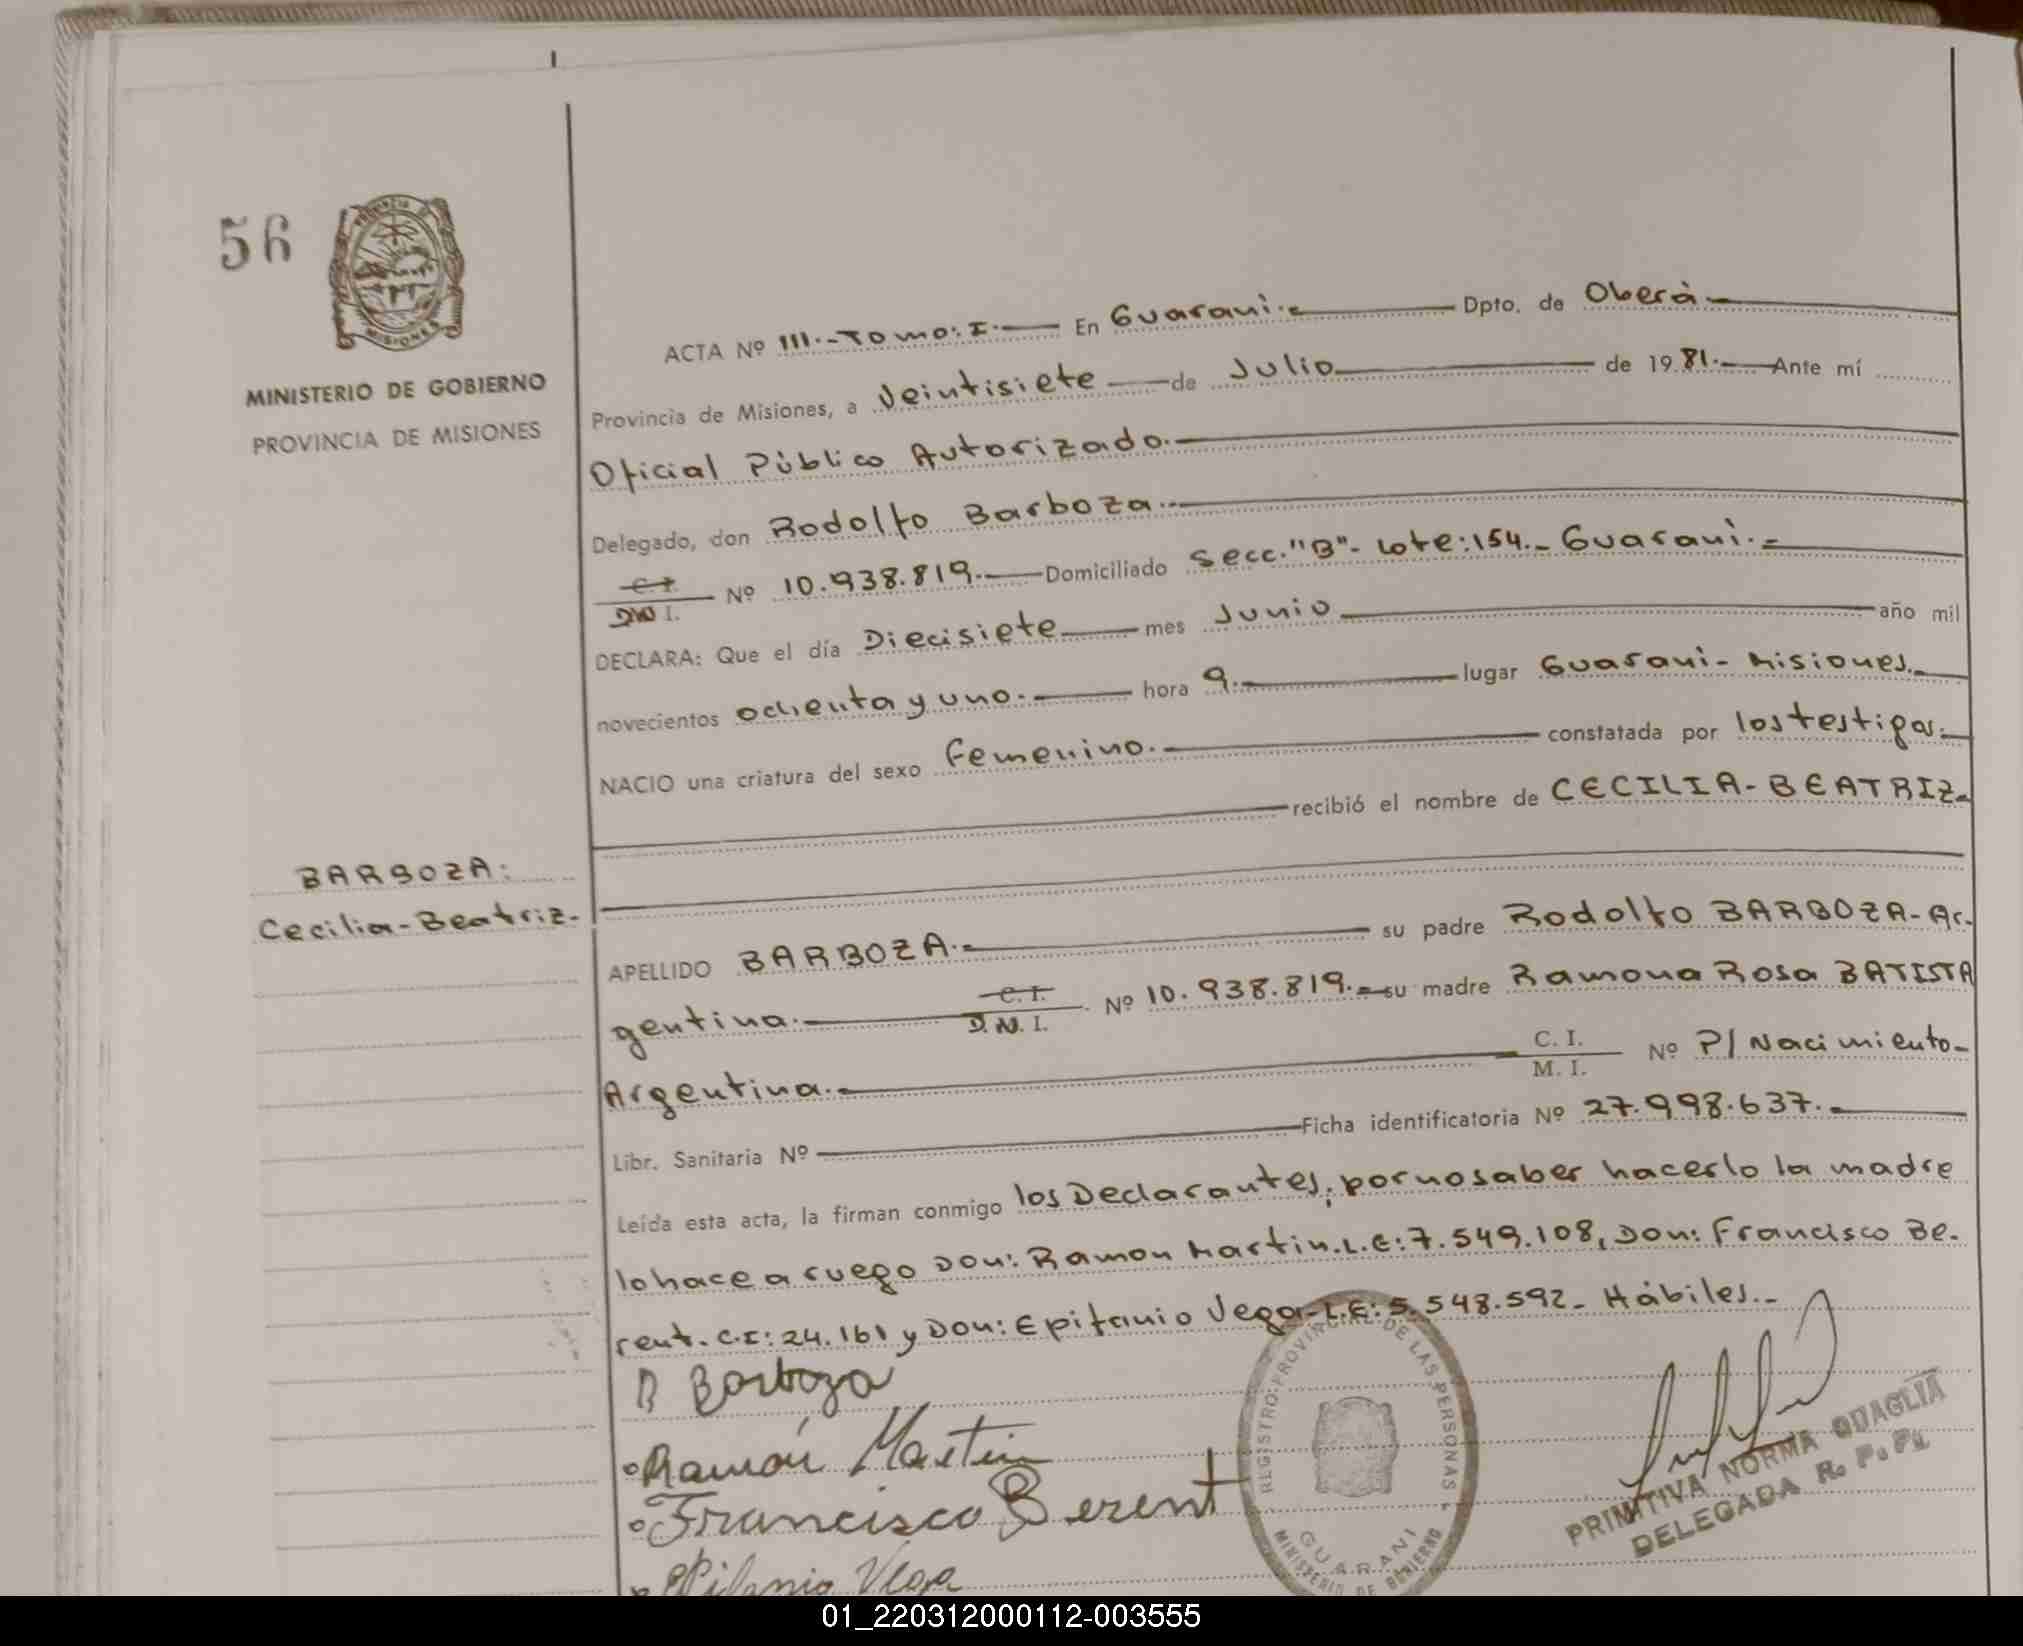 56
PROVINCIA DE
MISIONES
MINISTERIO DE GOBIERNO
PROVINCIA DE MISIONES
ACTA Nº 111.-Tomo:I.- En Guarani.- Dpto. de Oberà-
Provincia de Misiones, a Veintisiete de Julio de 1981.- Ante mí
Oficial Público Autorizado.-
Delegado, don Rodolfo Barboza.-
C.I.
D.N.I. Nº 10.938.819.- Domiciliado Secc."B"- Lote:154.- Guarani.-
DECLARA: Que el día Diecisiete mes Junio año mil
novecientos ochenta y uno.- hora 9.- lugar Guarani- Misiones.-
NACIO una criatura del sexo Femenino.- constatada por los testigos.-
recibió el nombre de CECILIA-BEATRIZ-
BARBOZA:
Cecilia-Beatriz-
APELLIDO BARBOZA.- su padre Rodolfo BARBOZA-Ar-
gentina.- C.I.
D.N.I. Nº 10.938.819.- su madre Ramona Rosa BATISTA
Argentina.- C. I.
M. I. Nº P/ Nacimiento-
Libr. Sanitaria Nº Ficha identificatoria Nº 27.998.637.-
Leída esta acta, la firman conmigo los Declarantes, por no saber hacerlo la madre
lo hace a ruego Don: Ramon Martin.L.E:7.549.108, Don: Francisco Be-
rent.C.I:24.161 y Don: Epifanio Vega-L.E:5.548.592- Hábiles.-
R Barboza
Ramón Martin
Francisco Berent
Epifanio Vega
REGISTRO PROVINCIAL DE LAS PERSONAS
GUARANI
MINISTERIO DE GOBIERNO
PRIMITIVA NORMA QUAGLIA
DELEGADA R. P. P.
01_220312000112-003555